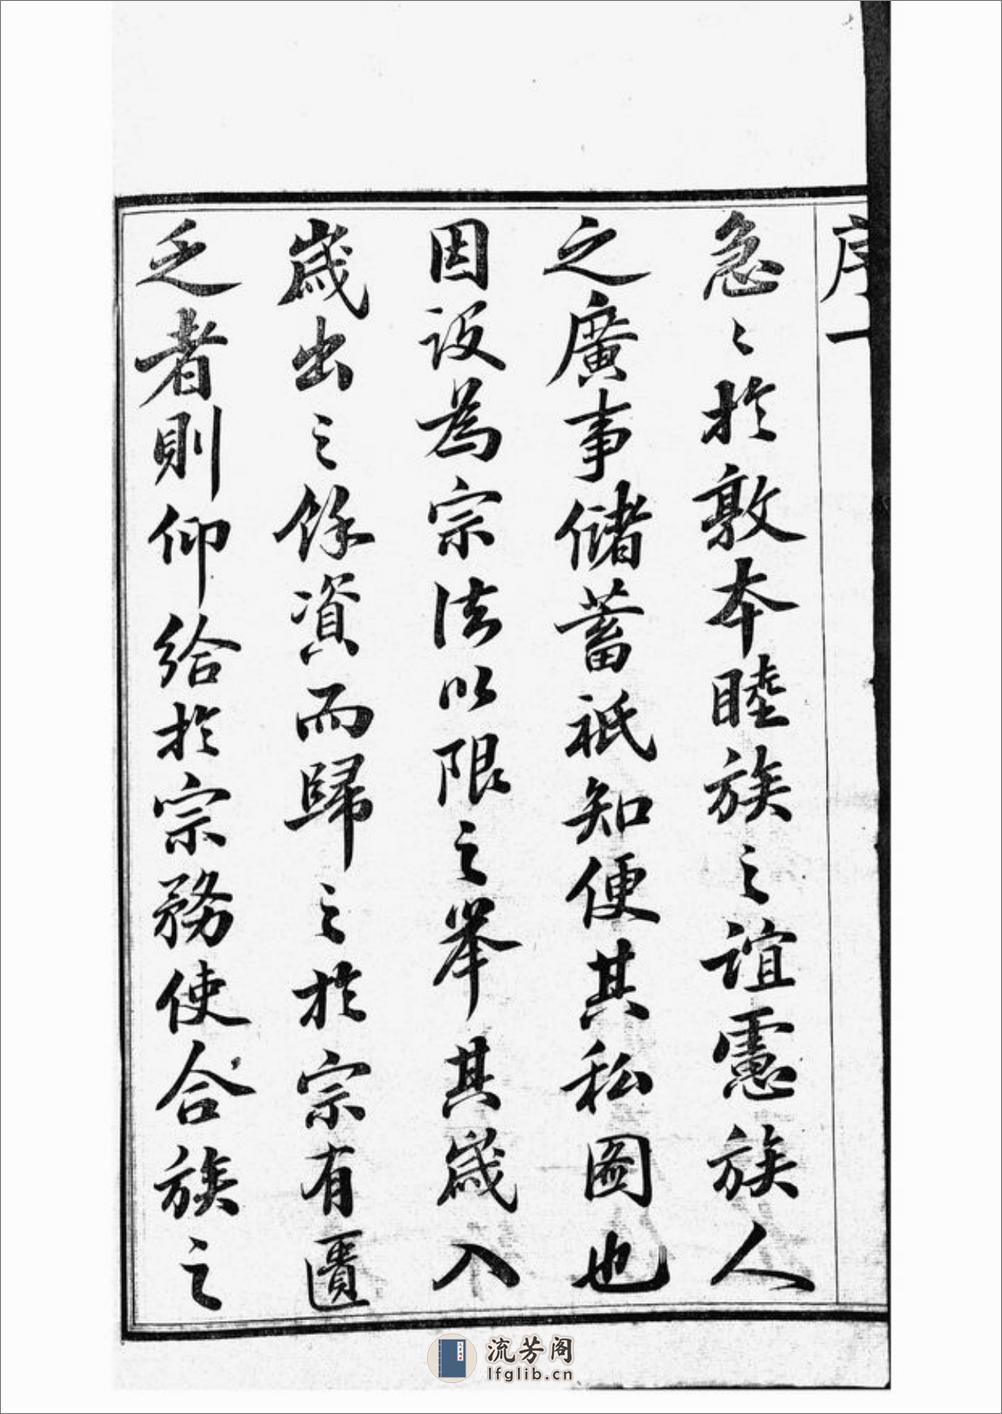 序一
急〻於敦本睦族之誼慮族人
之廣事儲蓄祇知便其私圖也
因設為宗法以限之舉其歲入
歲出之餘資而歸之於宗有匱
乏者則仰給於宗務使合族之
流芳阁
lfglib.cn